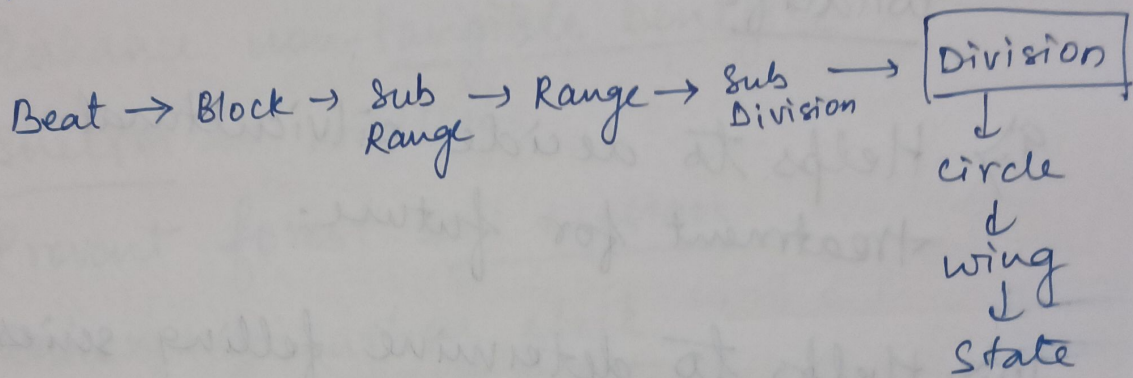 Beat → Block → Sub Range → Range → Sub Division → Division
↓
circle
↓
wing
↓
State